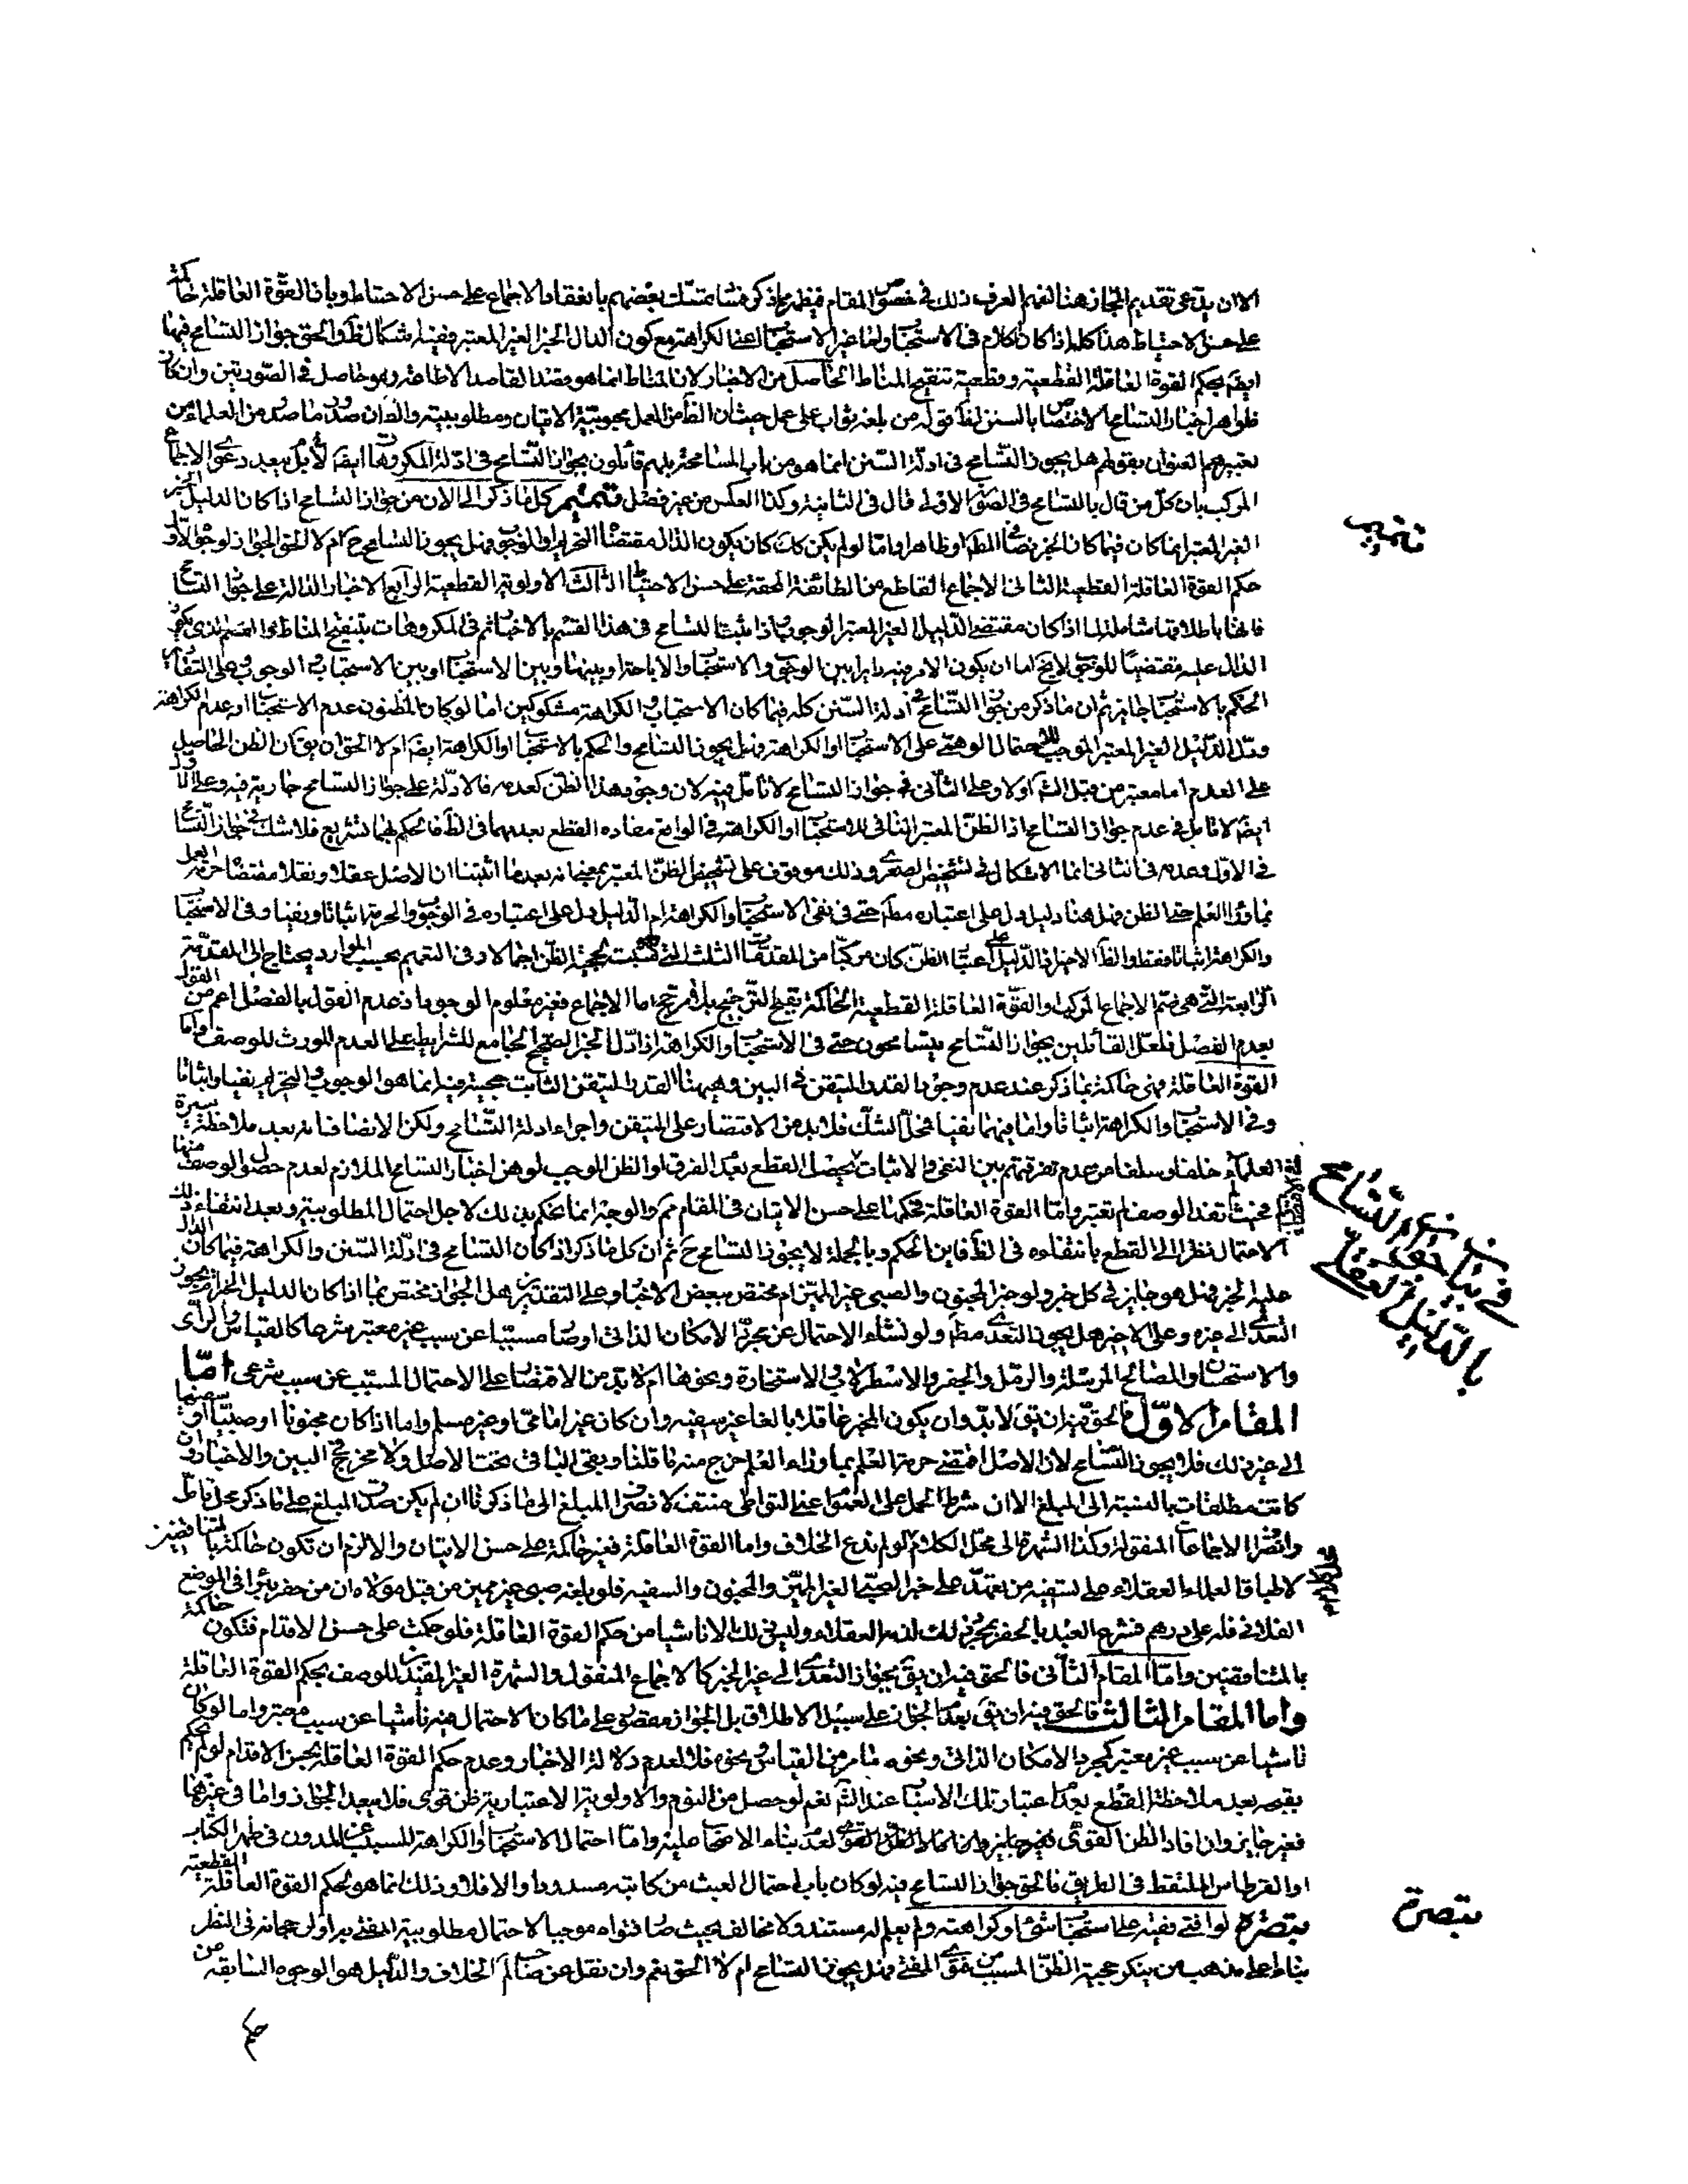 الا ان يدعى تقديم المجاز هنا لفهم العرف ذلك فى خصوص المقام فيظهر مما ذكر فساد تمسك بعضهم بانعقاد الاجماع على حسن الاحتياط وبان القوة العاقلة حاكمة
على حسن الاحتياط هذا كله اذا كان الكلام فى الاستحباب واما غير الاستحباب اعنى الكراهة مع كون الدال الخبر الغير المعتبر ففيه اشكال الحق جواز التسامح فيها
ايضا بحكم القوة العاقلة القطعية وقطعية تنقيح المناط الحاصل من الاخبار لان المناط انما هو قصد القاصد الاطاعة وهو حاصل فى الصورتين وان كان
ظواهر اخبار التسامح الاختصاص بالسنن لقوله من بلغه ثواب على عمل حيث ان الظ من العمل محبوبية الاتيان ومطلوبيته والظ ان صدور ما صدر من العلماء من
تعبيرهم العنوان بقولهم هل يجوز التسامح فى ادلة السنن انما هو من باب المسامحة بل هم قائلون بجواز التسامح فى ادلة المكروهات ايضا بل لا يبعد دعوى الاجماع
المركب بان كل من قال بالتسامح فى الصورة الاولى قال فى الثانية وكذا العكس من غير فصل تتميم كل ما ذكر الى الان من جواز التسامح اذا كان الدليل الخبر
الغير المعتبر انما كان فيما كان الخبر نصا فى المطلوب او ظاهرا واما لو لم يكن كك كان يكون الدال مقتضيا للتحريم او للوجوب فهل يجوز التسامح ح ام لا الحق الجواز لوجوه الاول
حكم القوة العاقلة القطعية الثانى الاجماع القاطع من الطائفة المحقة على حسن الاحتياط الثالث الاولوية القطعية الرابع الاخبار الدالة على جواز التسامح
فانها باطلاقها شاملة لما اذا كان مقتضى الدليل الغير المعتبر الوجوب فاذا ثبت التسامح فى هذا القسم بالاخبار ثم فى المكروهات بتنقيح المناط والقسم الذى يكون
الدال عليه مقتضيا للوجوب لا يخ اما ان يكون الامر فيه دايرا بين الوجوب والاستحباب والاباحة او بينهما وبين الاستحباب او بين الاستحباب والوجوب على التقادير
الحكم بالاستحباب جايز ثم ان ما ذكر من جواز التسامح فى ادلة السنن كله فيما كان الاستحباب والكراهة مشكوكين اما لو كان المظنون عدم الاستحباب او عدم الكراهة
ودل الدليل الغير المعتبر الموجب للاحتمال الوهمى على الاستحباب او الكراهة فهل يجوز التسامح والحكم بالاستحباب او الكراهة ايضا ام لا الحق ان يق ان الظن الحاصل
على العدم اما معتبر من قبل الشرع او لا وعلى الثانى فجواز التسامح لا تامل فيه لان وجود هذا الظن كعدمه فالادلة على جواز التسامح جارية فيه وعلى الاول
ايضا لا تامل فى عدم جواز التسامح اذ الظن المعتبر النافى للاستحباب او الكراهة فى الواقع مفاده القطع بعدمهما فى الظ فالحكم بهما تشريع فلا شك فى جواز التسامح
فى الاول وعدمه فى الثانى انما الاشكال فى تشخيص الصغرى وذلك موقوف على تشخيص الظن المعتبر بمعنى انه بعد ما اثبتنا ان الاصل عقلا ونقلا مقتضاه حرمة العمل
بما وراء العلم حتى الظن فهل هنا دليل دل على اعتباره مط حتى فى نفى الاستحباب والكراهة ام الدليل دل على اعتباره فى الوجوب والحرمة اثباتا ونفيا وفى الاستحباب
والكراهة اثباتا فقط والظ الاخير اذ الدليل على اعتبار الظن كان مركبا من المقدمات الثلث التى تثبت حجية الظن اجمالا وفى التعميم بحسب الموارد يحتاج الى المقدمة
الرابعة التى هى ضم الاجماع المركب او القوة العاقلة القطعية الحاكمة بقبح الترجيح بلا مرجح اما الاجماع فغير معلوم الوجود اذ عدم القول بالفصل اعم من القول
بعدم الفصل فلعل القائلين بجواز التسامح يتسامحون حتى فى الاستحباب والكراهة اذا دل الخبر الصحيح الجامع للشرايط على العدم المورث للوصف واما
القوة العاقلة فهى حاكمة بما ذكر عند عدم وجود القدر المتيقن فى البين وهيهنا القدر المتيقن الثابت حجيته فيه انما هو الوجوب والتحريم نفيا واثباتا
وفى الاستحباب والكراهة اثباتا واما فيهما نفيا فمحل الشك فلا بد من الاقتصار على المتيقن واجراء ادلة التسامح ولكن الانصاف انه بعد ملاحظة سيرة
العلماء خلفا وسلفا من عدم تفرقتهم بين النفى والاثبات يحصل القطع بعدم الفرق او الظن الموجب لوهن اخبار التسامح الملازم لعدم حصول الوصف منها
فحيث تفقد الوصف لم تعتبر واما القوة العاقلة فحكمها على حسن الاتيان فى المقام مم والوجه انما تحكم بذلك لاجل احتمال المطلوبية وبعد انتفاء ذلك
الاحتمال نظرا الى القطع بانتفائه فى الظ فاين الحكم وبالجملة لا يجوز التسامح ح ثم ان كل ما ذكر اذا كان التسامح فى ادلة السنن والكراهة فيما كان الدال
عليه الخبر فهل هو جايز فى كل خبر ولو خبر المجنون والصبى غير المميز ام مختص ببعض الاخبار وعلى التقديرين هل الجواز مختص بما اذا كان الدليل الخبر ام يجوز
التعدى الى غيره وعلى الاخير هل يجوز التعدى مط ولو نشاء الاحتمال عن مجرد الامكان الذاتى او صار مسببا عن سبب غير معتبر شرعا كالقياس والراى
والاستحسان والمصالح المرسلة والرمل والجفر والاسطرلاب والاستخارة ونحوها ام لا بد من الاقتصار على الاحتمال المسبب عن سبب شرعى اما
المقام الاول فالحق فيه ان يق لا بد وان يكون المخبر عاقلا بالغا غير سفيه وان كان غير امامى او غير مسلم واما اذا كان مجنونا او صبيا او سفيها
الى غير ذلك فلا يجوز التسامح لان الاصل اقتضى حرمة العلم بما وراء العلم خرج منه ما قلنا وبقى الباقى تحت الاصل ولا مخرج فى البين والاخبار وان
كانت مطلقات بالنسبة الى المبلغ الا ان شرط الحمل على العموم اعنى التواطى منتف لانصراف المبلغ الى ما ذكرنا ان لم يكن صدق المبلغ على ما ذكر محل تامل
وانصراف الاجماعات المنقولة وكذا الشهرة الى محل الكلام لو لم ندع الخلاف واما القوة العاقلة فغير حاكمة على حسن الاتيان والا لزم ان تكون حاكمة بالمتناقضين
لاطباق العلماء العقلاء على تسفيه من يعتمد على خبر الصبى الغير المميز والمجنون والسفيه فلو بلغه صبى غير مميز من قبل مولاه ان من حفر بئرا فى الموضع
الفلانى فله على درهم فشرع العبد بالحفر بمجرد ذلك لذمه العقلاء وليس ذلك الا ناشيا من حكم القوة العاقلة فلو حكمت على حسن الاقدام فتكون حاكمة
بالمتناقضين واما المقام الثانى فالحق فيه ان يق بجواز التعدى الى غير الخبر كالاجماع المنقول والشهرة الغير المفيد للوصف بحكم القوة العاقلة
واما المقام الثالث فالحق فيه ان يق بعدم الجواز على سبيل الاطلاق بل الجواز مقصور على ما كان الاحتمال فيه ناشيا عن سبب معتبر واما لو كان
ناشيا عن سبب غير معتبر كمجرد الامكان الذاتى ونحوه مما مر من القياس ونحوه فلا لعدم دلالة الاخبار وعدم حكم القوة العاقلة بحسن الاقدام لو لم يحكم
بقبحه بعد ملاحظة القطع بعدم اعتبار تلك الاسباب عند الشرع نعم لو حصل من النوم والاولوية الاعتبارية ظن قوى فلا يبعد الجواز واما فى غيرهما
فغير جايز وان افاد الظن القوى لعدم بناء الاصحاب عليه واما احتمال الاستحباب والكراهة المسبب عن المدون فى ظهر الكتاب
او القرطاس الملتقط فى الطريق فالحق جواز التسامح فيه لو كان باب احتمال العبث من كاتبه مسدودا والا فلا وذلك انما هو لحكم القوة العاقلة القطعية
تبصرة لو افتى فقيه على استحباب شئ او كراهته ولم يعلم له مستند ولا مخالف بحيث صار فتواه موجبا لاحتمال مطلوبية المفتى به او لرجحانه فى النظر
بناء على مذهب من ينكر حجية الظن المسبب من فتوى المفتى فهل يجوز التسامح ام لا الحق نعم وان نقل عن صاحب لم الخلاف والدليل هو الوجوه السابقة من
حكم
تذنيب
فى بيان جواز التسامح
بالدليل العقلى
تبصرة